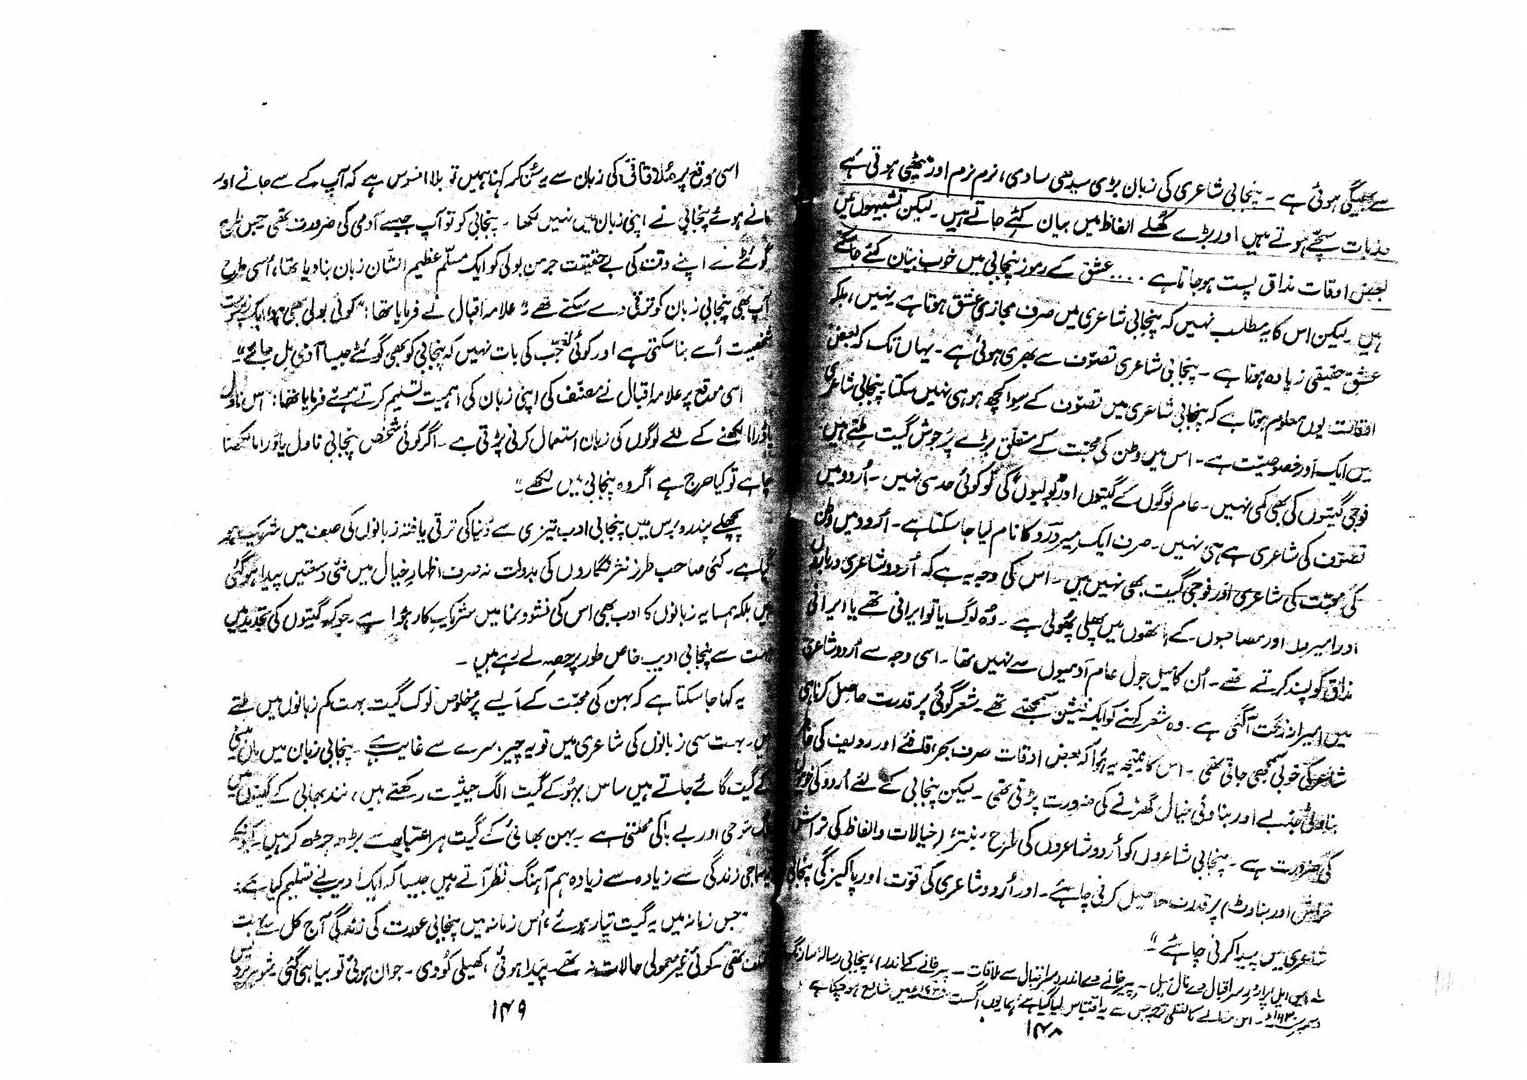 سے بھیگی ہوئی ہے ۔ پنجابی شاعری کی زبان بڑی سیدھی سادی، نرم نرم اور میٹھی ہوتی ہے
جذبات سچّے ہوتے ہیں اور بڑے کُھلے الفاظ میں بیان کئے جاتے ہیں ۔ لیکن تشبیہوں میں
بعض اوقات مذاق پست ہوجاتا ہے ۔ ... عشق کے رموز پنجابی میں خوب بیان کئے جاسکتے
ہیں ۔ لیکن اس کا یہ مطلب نہیں کہ پنجابی شاعری میں صرف مجازی عشق ہوتا ہے نہیں، بلکہ
عشق حقیقی زیادہ ہوتا ہے ۔ پنجابی شاعری تصوّف سے بھری ہوئی ہے ۔ یہاں تک کہ بعض
اوقات یوں معلوم ہوتا ہے کہ پنجابی شاعری میں تصوّف کے سوا کچھ ہو ہی نہیں سکتا پنجابی شاعری
میں ایک اَور خصوصیّت ہے ۔ اس میں وطن کی محبّت کے متعلق بڑے پُرجوش گیت ملتے ہیں
فوجی گیتوں کی بھی کمی نہیں ۔ عام لوگوں کے گیتوں اور "بولیوں" کی تو کوئی حد ہی نہیں ۔ اُردو میں
تصوّف کی شاعری ہے ہی نہیں ۔ صرف ایک میر درد کا نام لیا جاسکتا ہے ۔ اُردو میں وطن
کی محبّت کی شاعری اور فوجی گیت بھی نہیں ہیں ۔ اس کی وجہ یہ ہے کہ اُردو شاعری درباروں
اور امیروں اور مصاحبوں کے ہاتھوں میں پھلی پُھولی ہے ۔ وہ لوگ یا تو ایرانی تھے یا ایرانی
مذاق کو پسند کرتے تھے ۔ اُن کا میل جول عام آدمیوں سے نہیں تھا ۔ اسی وجہ سے اُردو شاعری
میں امیرانہ نزاکت آگئی ہے ۔ وہ شعر کہنے کو ایک فیشن سمجھتے تھے ۔ شعر گوئی پر قدرت حاصل کرنا ہی
شاعر کی خوبی سمجھی جاتی تھی ۔ اس کا نتیجہ یہ ہُوا کہ بعض اوقات صرف بحر، قافئے اور ردیف کی خاطر
بناوٹی جذبے اور بناوٹی خیال گھڑنے کی ضرورت پڑتی تھی ۔ لیکن پنجابی کے لئے اُردو کی خوبیوں
کی ضرورت ہے ۔ پنجابی شاعروں کو اُردو شاعروں کی طرح "بنتر" (خیالات و الفاظ کی تراش
خراش اور بناوٹ) پر قدرت حاصل کرنی چاہئے ۔ اور اُردو شاعری کی قوّت اور پاکیزگی پنجابی
شاعری میں پیدا کرنی چاہئے"
۔ سر اقبال دے نال میل ۔ سر اقبال سے ملاقات ۔ پنجابی رسالہ سارنگ
دسمبر ۱۹۳۰ء ۔ اس کا لفظی ترجمہ جس سے یہ اقتباس لیا گیا ہے ہمایوں اگست میں شائع ہوچکا ہے
۱۴۸
اسی موقع پر مُلاقاتی کی زبان سے یہ سُن کر کہ ہمیں تو بڑا افسوس ہے کہ آپ کے سے جانے اور
مانے ہوئے پنجابی نے اپنی زبان میں نہیں لکھا ۔ پنجابی کو تو آپ جیسے آدمی کی ضرورت تھی جس طرح
گوئٹے نے اپنے وقت کی بے حقیقت جرمن بولی کو ایک مسلّم عظیم الشان زبان بنادیا تھا، اُسی طرح
آپ بھی پنجابی زبان کو ترقی دے سکتے تھے" علامہ اقبال نے فرمایا تھا: "کوئی بولی بھی ہو، ایک زبردست
شخصیت اُسے بنا سکتی ہے اور کوئی تعجّب کی بات نہیں کہ پنجابی کو بھی گوئٹے جیسا آدمی مل جائے"
اسی موقع پر علامہ اقبال نے مصنّف کی اپنی زبان کی اہمیت تسلیم کرتے ہوئے فرمایا تھا: "اس ناول
یا ڈراما لکھنے کے لئے لوگوں کی زبان استعمال کرنی پڑتی ہے ۔ اگر کوئی شخص پنجابی ناول یا ڈراما لکھنا
چاہے تو کیا حرج ہے اگر وہ پنجابی میں لکھے"
پچھلے پندرہ برس میں پنجابی ادب تیزی سے دُنیا کی ترقی یافتہ زبانوں کی صف میں شریک ہو
گیا ہے ۔ کئی صاحب طرز نثر نگاروں کی بدولت نہ صرف اظہارِ خیال میں نئی وسعتیں پیدا ہوگئی
ہیں بلکہ ہمسایہ زبانوں کا ادب بھی اس کی نشوونما میں شریکِ کار ہُوا ہے ۔ چونکہ گیتوں کی تجدید میں
بہت سے پنجابی ادیب خاص طور پر حصہ لے رہے ہیں ۔
یہ کہا جاسکتا ہے کہ بہن کی محبّت کے ایسے پُرخلوص لوک گیت بہت کم زبانوں میں ملتے
ہیں ۔ بہت سی زبانوں کی شاعری میں تو یہ چیز سرے سے غائب ہے ۔ پنجابی زبان میں ماں بیٹی
کے گیت گائے جاتے ہیں ساس بہُو کے گیت الگ حیثیت رکھتے ہیں، نند بھابی کے گیتوں میں
شوخی اور بے باکی ملتی ہے ۔ بہن بھائی کے گیت ہر اعتبار سے بڑھ چڑھ کر ہیں کیونکہ
یہ سماجی زندگی سے زیادہ سے زیادہ ہم آہنگ نظر آتے ہیں جیسا کہ ایک ادیب نے تسلیم کیا ہے:
"جس زمانہ میں یہ گیت تیار ہوئے، اُس زمانہ میں پنجابی عورت کی زندگی آج کل سے بہت
مختلف تھی ۔ کوئی غیر معمولی حالات نہ تھے ۔ پیدا ہوئی، کھیلی کُودی ۔ جوان ہوئی تو بیاہی گئی ۔
۱۴۹